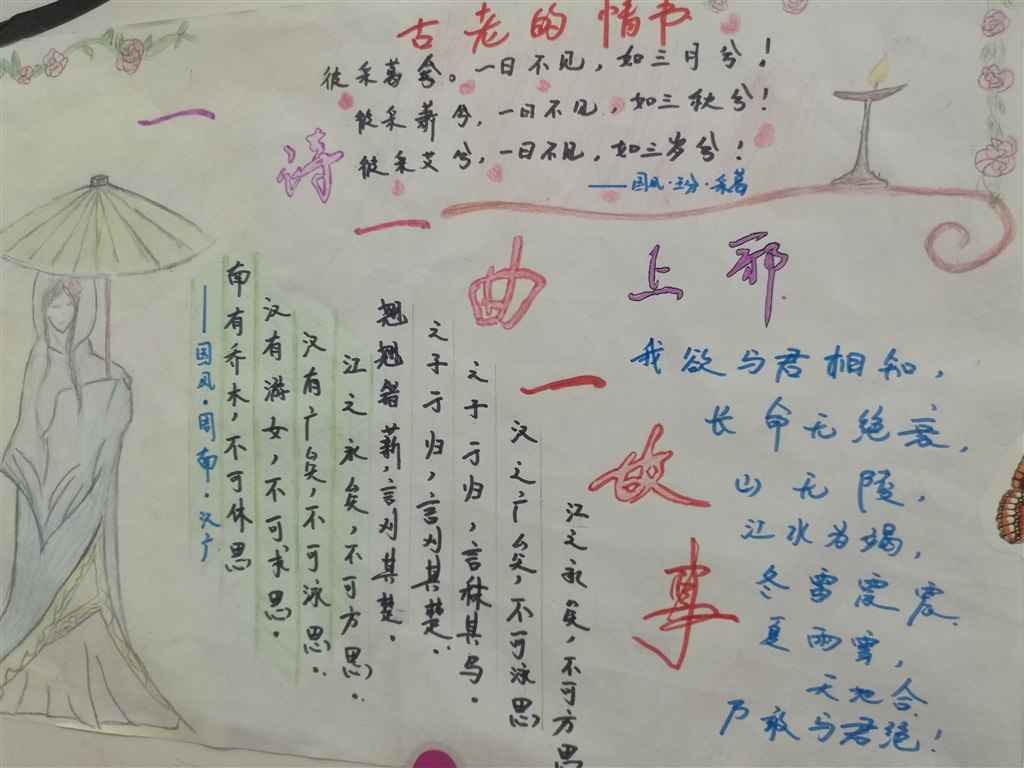 古老的情书
彼采葛兮。一日不见，如三月兮！
彼采薪兮，一日不见，如三秋兮！
彼采艾兮，一日不见，如三岁兮！
——国风·王分·采葛
一
诗
一
曲
一
故
事
南有乔木，不可休思
汉有游女，不可求思。
汉有广矣，不可泳思.
江之永矣，不可方思.
翘翘错薪，言刈其楚.
之子于归，言刈其楚.
之子于归，言秣其马.
汉之广矣，不可泳思
江之永矣，不可方思
——国风·周南·汉广
上邪
我欲与君相知，
长命无绝衰，
山无陵，
江水为竭，
冬雷震震
夏雨雪，
天地合
乃敢与君绝！